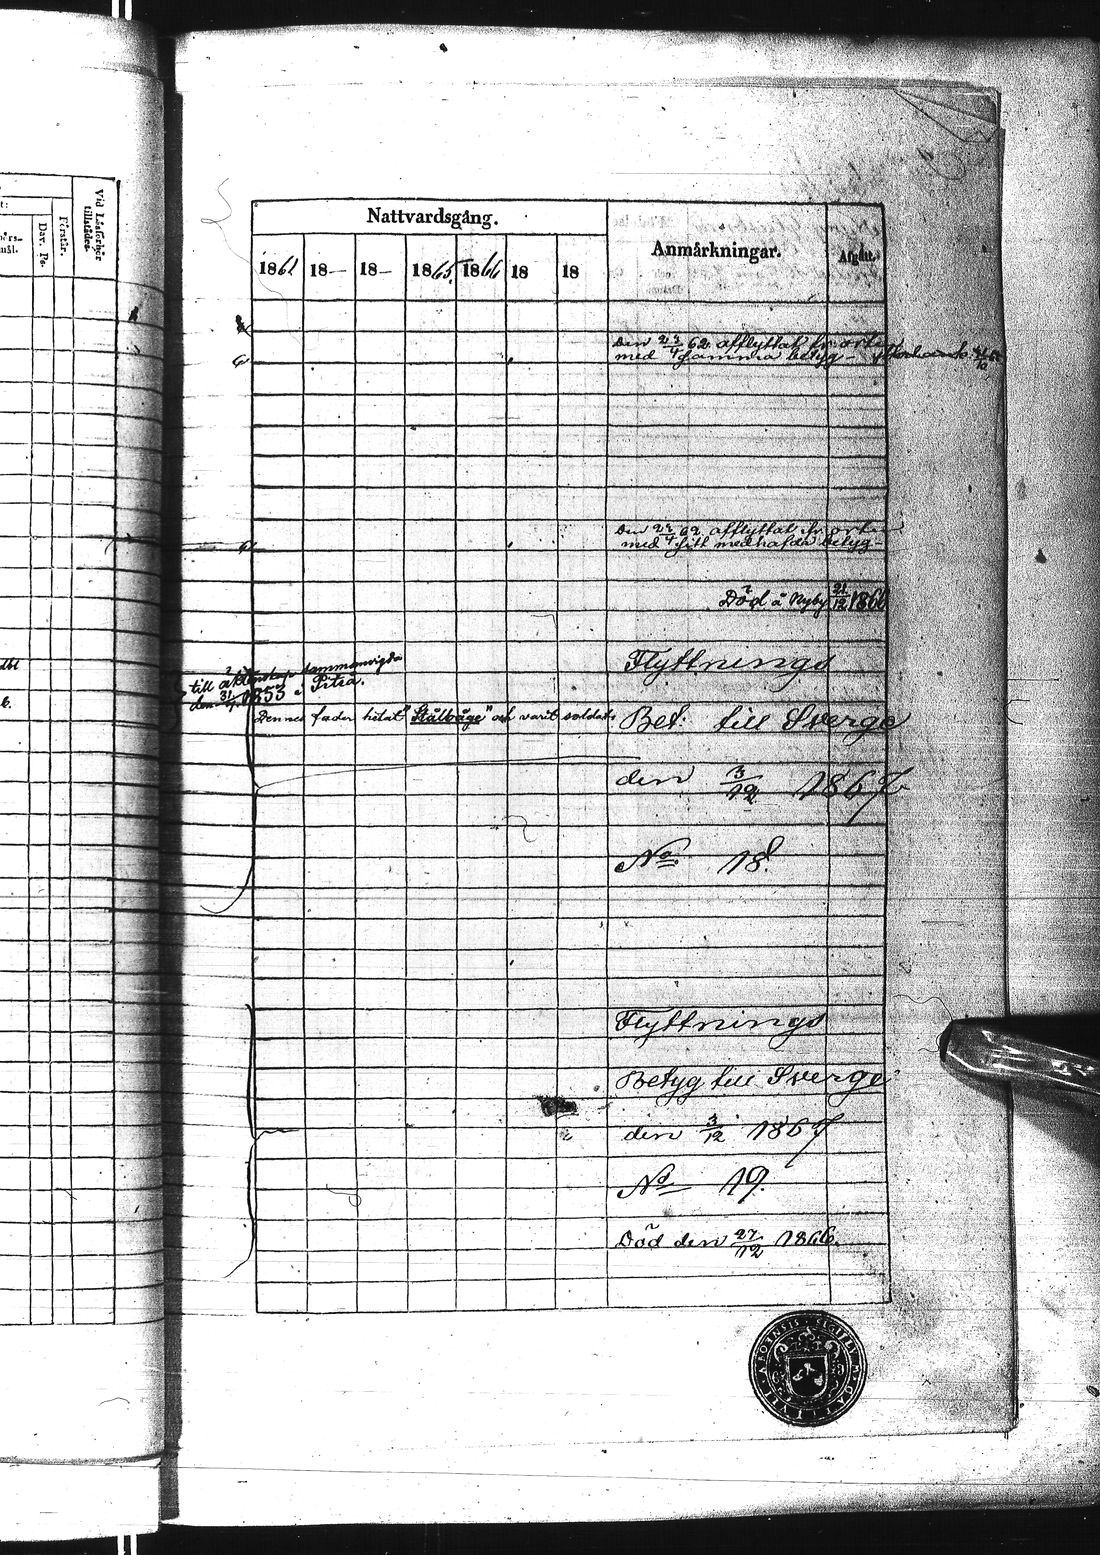 Vid Läsförhör
tillstädes.
Förstår.
Dav. Ps.
Nattvardsgång.
Anmärkningar.
Afgått.
1861 18— 18— 1865 1866 18 18
Den 23/4 62 afflyttat fr. orten
med samma betyg –
Den 24/4 62 afflyttat fr. orten
med sitt medhafda betyg –
Död å Nyby 21/12 1866
till äktenskap sammanvigda
den 31/7 1853 i Piteå.
Dennes fader hetat "Stålbåge" och varit soldat.
Flyttnings
Bet. till Sverge
den 3/12 1867
No 18.
Flyttnings
Betyg till Sverge
den 3/12 1867
No 19.
Död den 27/12 1866.